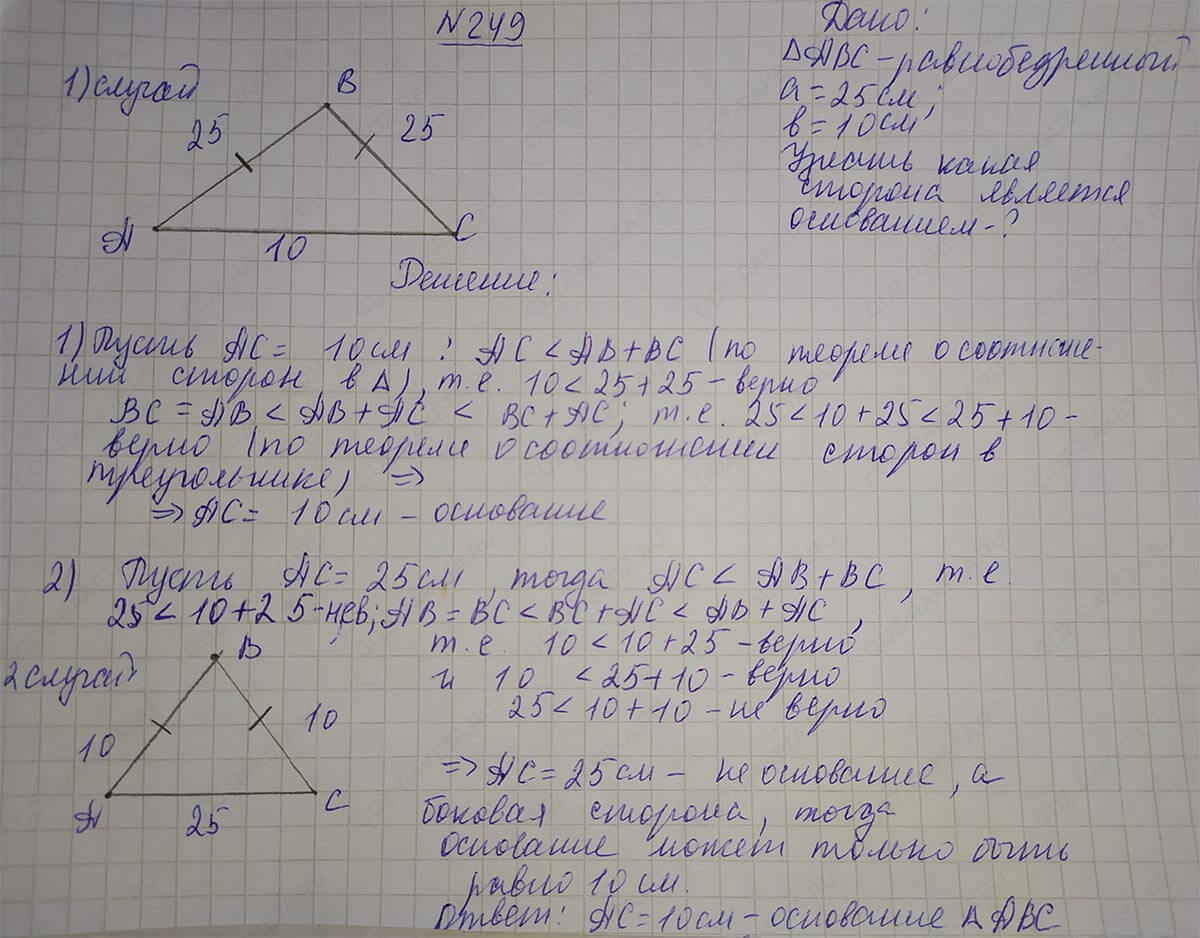 №249
Дано:
∆ABC – равнобедренный
a = 25 см;
в = 10 см;
Узнать какая
сторона является
основанием - ?
1) случай
B
25
25
A
C
10
Решение:
1) Пусть AC = 10 см : AC < AB + BC (по теореме о соотноше-
нии сторон в ∆), т.е. 10 < 25 + 25 – верно
BC = AB < AB + AC < BC + AC; т.е. 25 < 10 + 25 < 25 + 10 –
верно (по теореме о соотношении сторон в
треугольнике) ⇒
⇒ AC = 10 см – основание
2) Пусть AC = 25 см, тогда AC < AB + BC, т.е.
25 < 10 + 25 - нев; AB = BC < BC + AC < AB + AC,
т.е. 10 < 10 + 25 – верно
и 10 < 25 + 10 – верно
25 < 10 + 10 – не верно
2 случай
B
10
10
A
C
25
⇒ AC = 25 см – не основание, а
боковая сторона, тогда
основание может только быть
равно 10 см.
Ответ: AC = 10 см – основание ∆ ABC
GDZ-RAKETA.RU